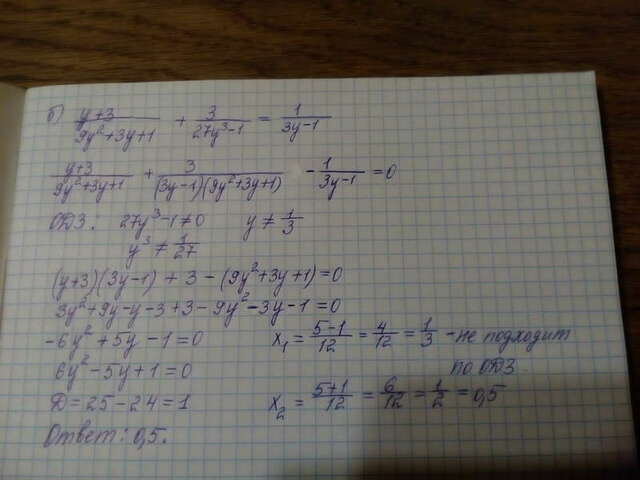 б) (y+3)/(9y²+3y+1) + 3/(27y³-1) = 1/(3y-1)
(y+3)/(9y²+3y+1) + 3/((3y-1)(9y²+3y+1)) - 1/(3y-1) = 0
ОДЗ: 27y³-1≠0 y ≠ 1/3
y³ ≠ 1/27
(y+3)(3y-1) + 3 - (9y²+3y+1)=0
3y²+9y-y-3+3-9y²-3y-1=0
-6y²+5y-1=0 x₁ = (5-1)/12 = 4/12 = 1/3 - не подходит
по ОДЗ.
6y²-5y+1=0
D=25-24=1 x₂ = (5+1)/12 = 6/12 = 1/2 = 0,5
Ответ: 0,5.